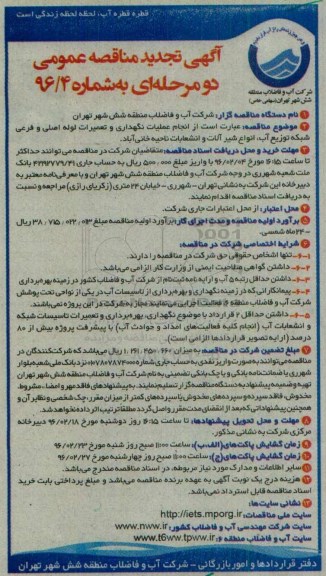 قطره قطره آب، لحظه لحظه زندگی است
آگهی تجدید مناقصه عمومی
دو مرحله‌ای به‌شماره ۹۶/۴
شرکت آب و فاضلاب منطقه
شش شهر تهران (سهامی خاص)
۱ نام دستگاه مناقصه گزار: شرکت آب و فاضلاب منطقه شش شهر تهران
۲ موضوع مناقصه: عبارت است از انجام عملیات نگهداری و تعمیرات لوله اصلی و فرعی
شبکه توزیع آب، انواع شیر آلات و انشعابات ناحیه خانی‌آباد.
۳ مهلت خرید و محل دریافت اسناد مناقصه: متقاضیان شرکت در مناقصه می توانند حداکثر
تا ساعت ۱۵:۱۵ مورخ ۹۶/۰۲/۰۴ با واریز مبلغ ۵۰۰,۰۰۰ ریال به حساب جاری بانک
ملت شعبه سهروردی در وجه شرکت آب و فاضلاب منطقه شش شهر تهران و با معرفی‌نامه معتبر به
دبیرخانه این شرکت به نشانی تهران - شهرری - خیابان ۲۴ متری (زکریای رازی) مراجعه و نسبت
به دریافت اسناد مناقصه اقدام نمایند.
۴ محل اعتبار: از محل اعتبارات جاری شرکت.
۵ برآورد اولیه مناقصه و مدت اجرای کار: برآورد اولیه مناقصه مبلغ ۳۸,۷۱۵,۰۲۲,۰۰۳ ریال
-۲۴ ماه شمسی.
۶ شرایط اختصاصی شرکت در مناقصه:
۶-۱- تنها اشخاص حقوقی حق شرکت در مناقصه را دارند.
۶-۲- داشتن گواهی صلاحیت ایمنی از وزارت کار الزامی می‌باشد.
۶-۳- داشتن حداقل رتبه ۵ آب و ارایه نامه استعلام از شرکت آب و فاضلاب کشور در زمینه بهره‌برداری
۶-۴- پیمانکارانی که در زمینه نگهداری و بهره برداری از تاسیسات آب در یکی از نواحی تحت پوشش
شرکت آب و فاضلاب منطقه ۶ فعالیت اجرایی می نمایند مجاز به شرکت در این پروژه نمی باشند.
۶-۵- داشتن حداقل ۲ قرارداد با موضوع نگهداری، بهره‌برداری و تعمیرات تاسیسات شبکه
و انشعابات آب (انجام کلیه فعالیت‌های امداد و حوادث آب) با پیشرفت پروژه بیش از ۸۰
درصد (ارایه تصویر قراردادها الزامی است)
۷ مبلغ تضمین شرکت در مناقصه: به میزان ۱,۲۶۱,۴۵۰,۶۶۰ ریال می‌باشد که شرکت‌کنندگان در
مناقصه می‌توانند به‌صورت واریز نقدی به حساب جاری نزد بانک ملی شعبه بلوار
شهرری یا ضمانتنامه بانکی و یا چک بانکی تضمینی به نام شرکت آب و فاضلاب منطقه شش شهر تهران
تهیه و ضمیمه پیشنهاد به دستگاه مناقصه گزار تسلیم نمایند. به پیشنهادهای فاقد مهر و امضا، مشروط،
مخدوش، فاقد سپرده و سپرده‌های مخدوش یا سپرده‌های کمتر از میزان مقرر، چک شخصی و نظایر آن و
همچنین پیشنهاداتی که بعد از انقضای مدت مقرر واصل گردد مطلقا ترتیب اثر داده نخواهد شد.
۸ مهلت و محل تحویل پیشنهادها: تا ساعت ۱۵:۱۵ روز دوشنبه مورخ ۹۶/۰۲/۱۸ دبیرخانه
مرکزی شرکت به نشانی مذکور.
۹ زمان گشایش پاکت‌های(الف،ب): ساعت ۱۱:۰۰ صبح روز شنبه مورخ ۹۶/۰۲/۲۳
۱۰ زمان گشایش پاکت‌های(ج): ساعت ۱۱:۰۰ صبح روز چهارشنبه مورخ ۹۶/۰۲/۲۷
۱۱ سایر اطلاعات و مدارک مورد نیاز مربوطه، در اسناد مناقصه مندرج می‌باشد.
۱۲ هزینه درج یک نوبت آگهی به عهده برنده مناقصه می‌باشد و مبلغ پرداختی بابت خرید
اسناد مناقصه قابل استرداد نمی‌باشد.
۱۳ نشانی سایت‌ها:
سایت ملی مناقصات: http://iets.mporg.ir
سایت شرکت مهندسی آب و فاضلاب کشور: www.nww.ir
سایت آب و فاضلاب منطقه ۶: www.t6ww.tpww.ir
دفتر قراردادها و امور بازرگانی - شرکت آب و فاضلاب منطقه شش شهر تهران